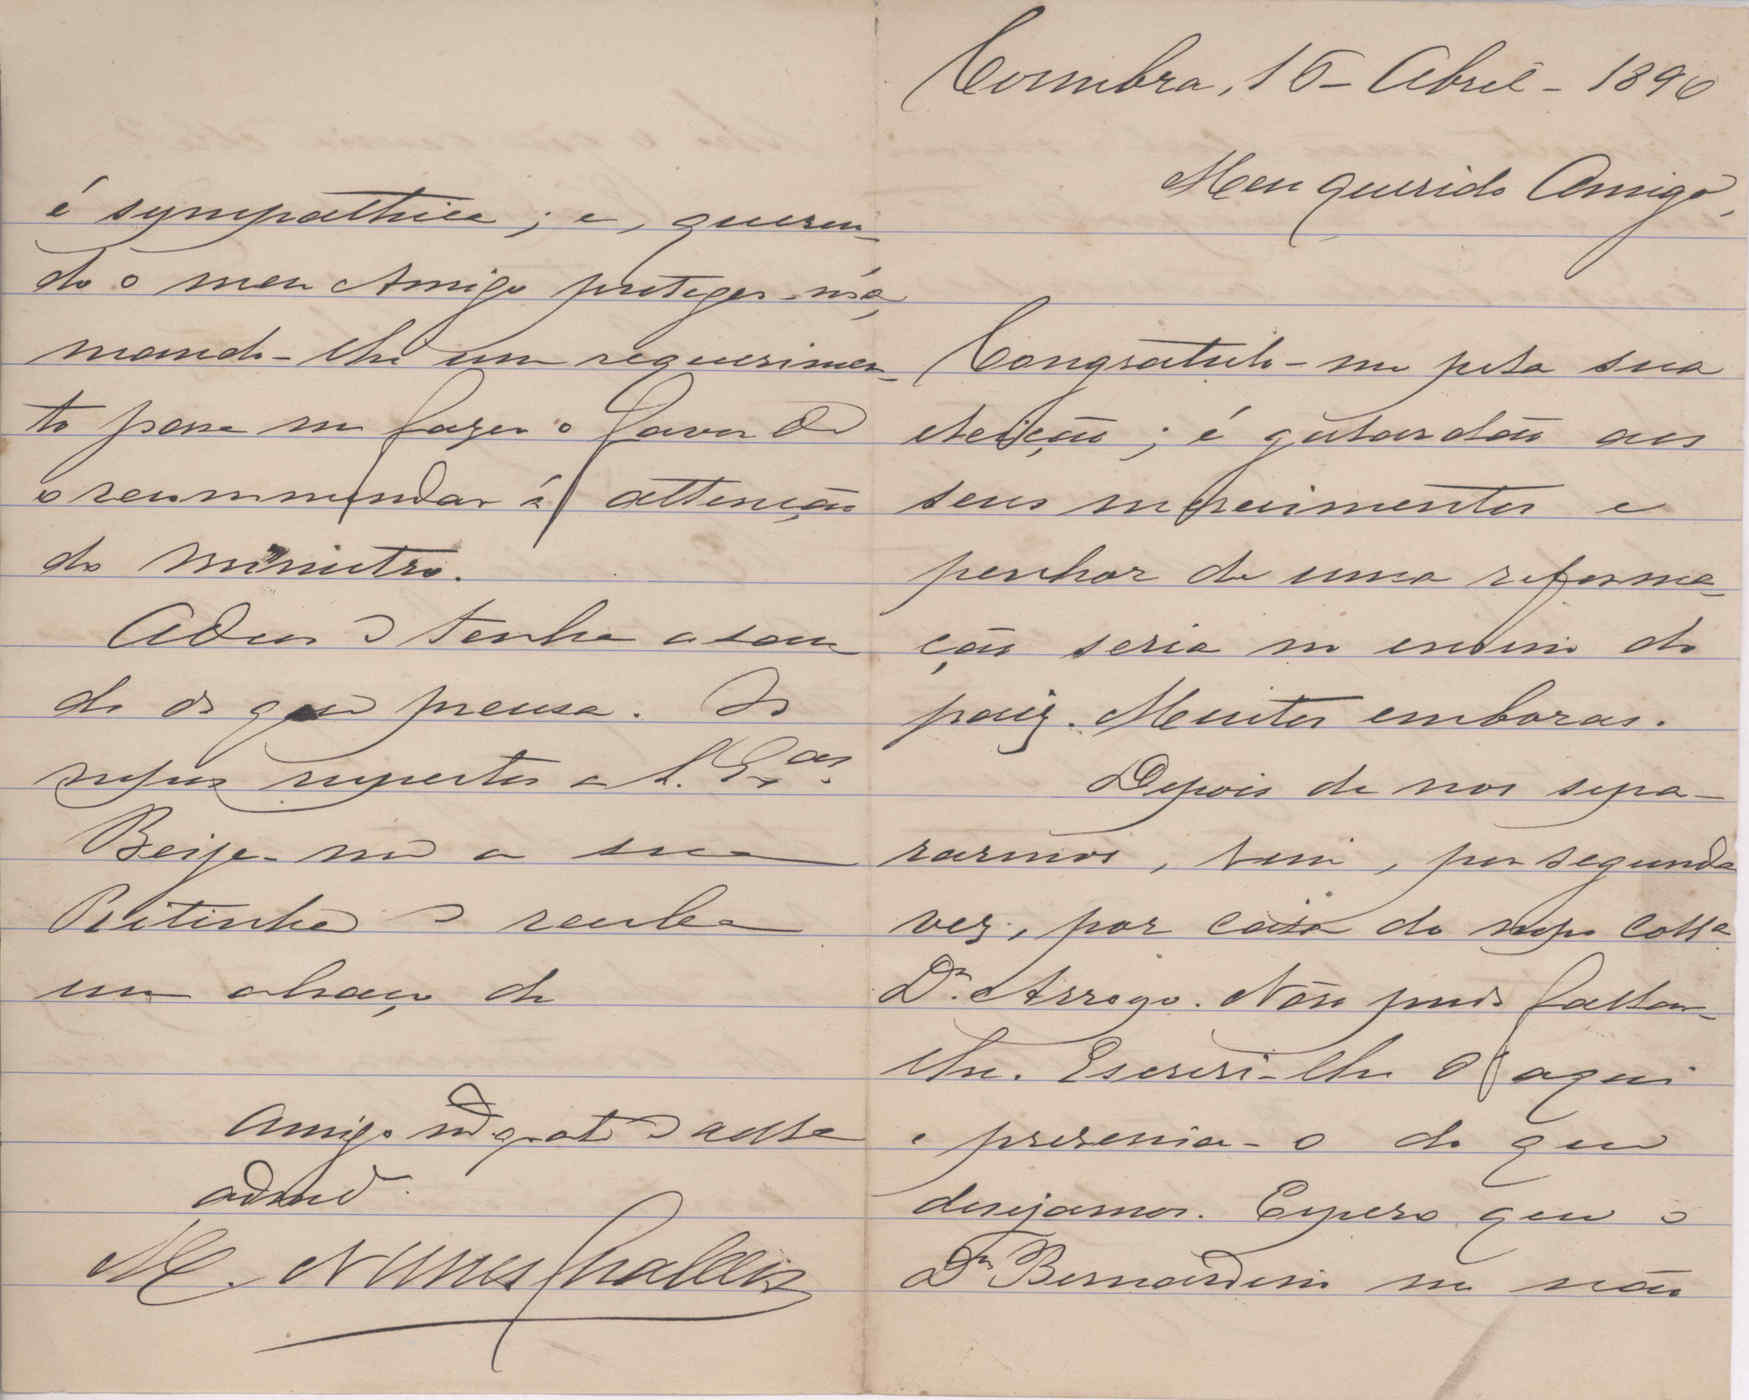 Coimbra, 16 - Abril - 1890
Meu querido Amigo,
Congratulo-me pela sua
eleição; é galardão aos
seus merecimentos e
penhor de uma reforma-
ção seria no ensino do
paiz. Muitos emboras.
Depois de nos sepa-
rarmos, vim, por segunda
vez, por caza do nosso coll.ª
Dr. Arroyo. Não pude fallar-
lhe. Escrevi-lhe d'aqui
e preveni-o do que
desejamos. Espero que o
Dr. Bernardino me não
é sympathico; e, queren-
do o meu Amigo proteger-nos,
mando-lhe um requerimen-
to para me fazer o favor de
o recommendar á attenção
do ministro.
Adeus e tenha a sau
de de que precisa. Os
nossos respeitos a S. Ex.as
Beije-me a sua
Ritinha e receba
um abraço do
amigo m.to grato e
admdr.
M. Nunes